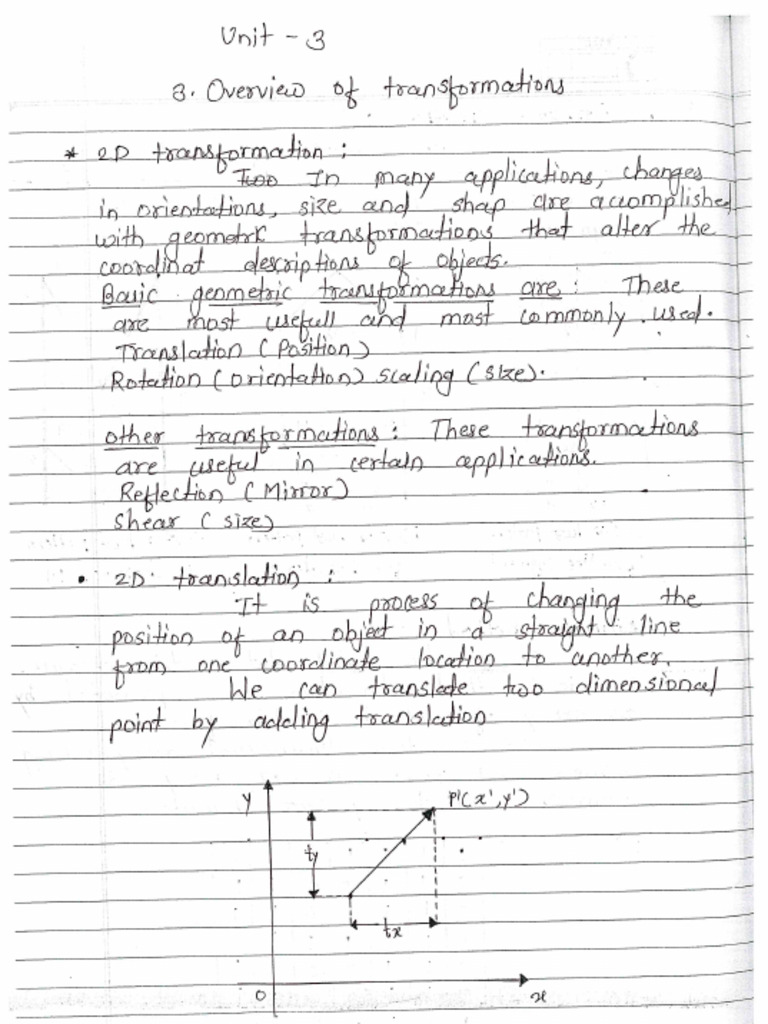 Unit - 3
3. Overview of transformations
* 2D transformation :
Two In many applications, changes
in orientations, size and shap are accomplished
with geometric transformations that alter the
coordinat descriptions of objects.
Basic geometric transformations are : These
are most usefull and most commonly used.
Translation (Position)
Rotation (orientation) scaling (size).
other transformations : These transformations
are useful in certain applications.
Reflection (Mirror)
Shear (size)
• 2D translation :
It is process of changing the
position of an object in a straight line
from one coordinate location to another.
We can translate two dimensional
point by adding translation
y
P'(x', y')
ty
tx
0
x